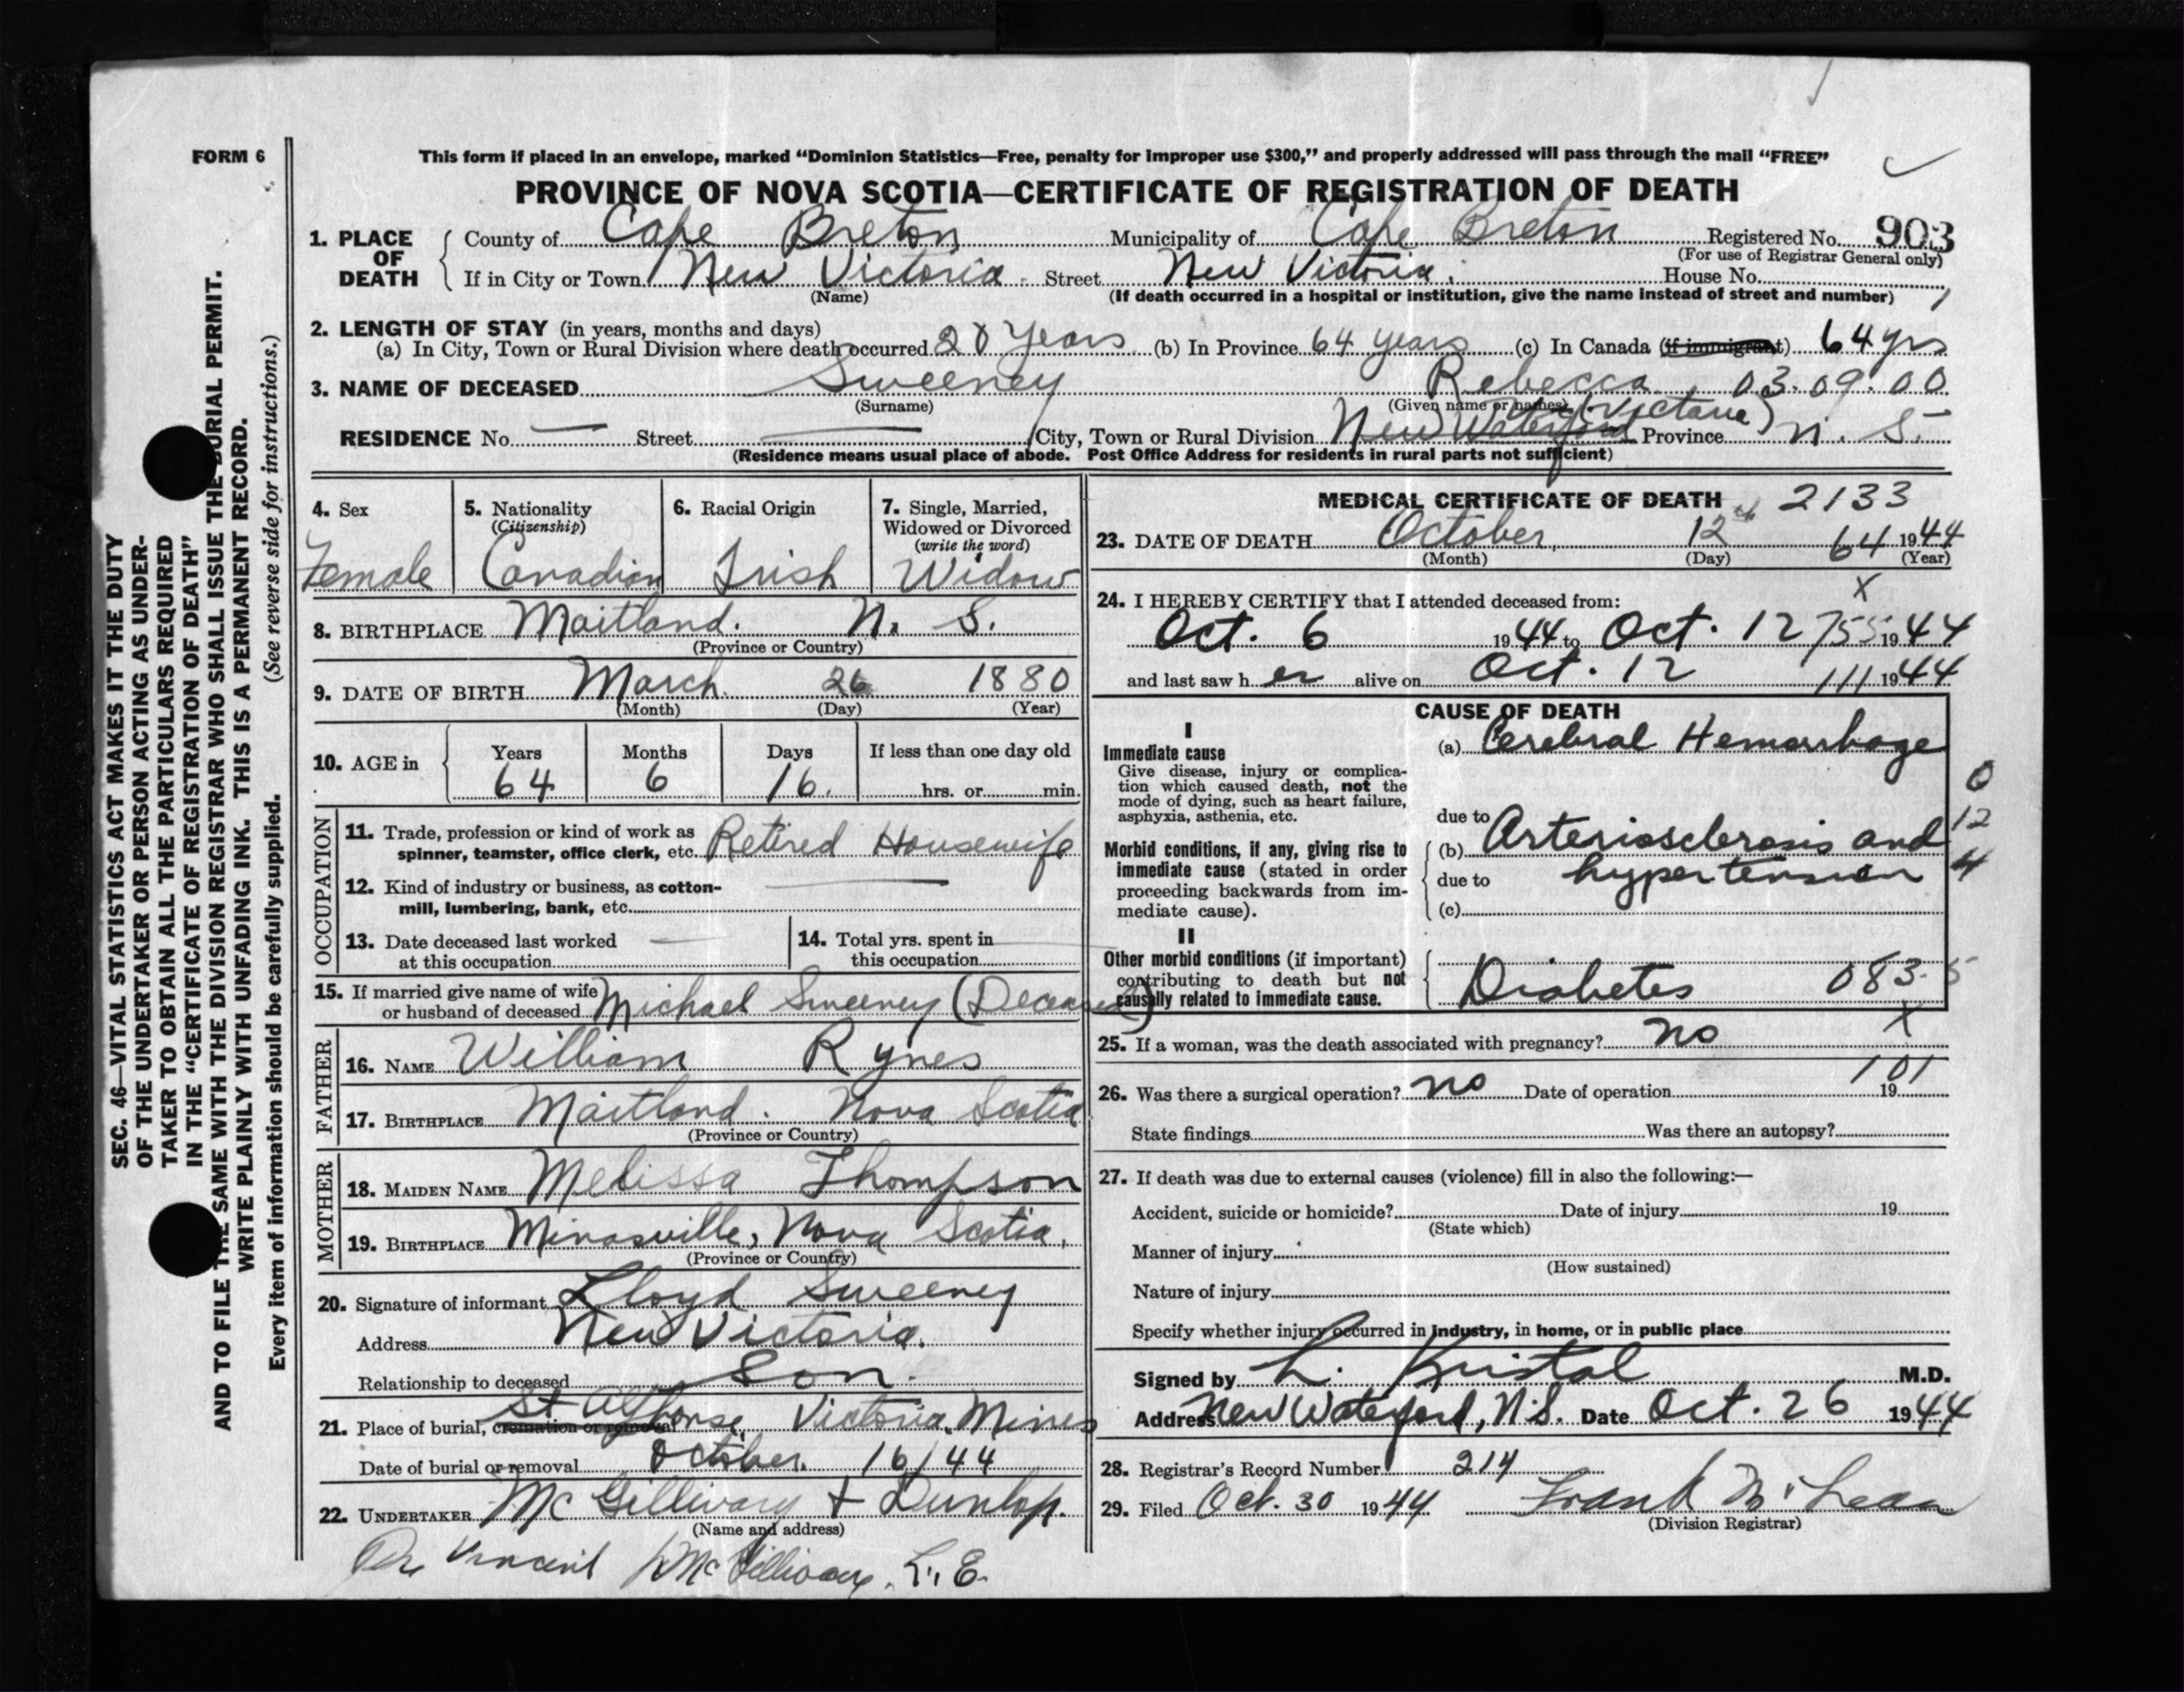 FORM 6
This form if placed in an envelope, marked “Dominion Statistics—Free, penalty for improper use $300,” and properly addressed will pass through the mail “FREE”
PROVINCE OF NOVA SCOTIA—CERTIFICATE OF REGISTRATION OF DEATH
1. PLACE OF DEATH
County of Cape Breton Municipality of Cape Breton Registered No. 903
(For use of Registrar General only)
If in City or Town New Victoria Street New Victoria. House No.
(Name) (If death occurred in a hospital or institution, give the name instead of street and number) 1
2. LENGTH OF STAY (in years, months and days)
(a) In City, Town or Rural Division where death occurred 28 Years (b) In Province 64 years (c) In Canada (if immigrant) 64 yrs
3. NAME OF DECEASED Sweeney Rebecca 03.09.00
(Surname) (Given name or names)
RESIDENCE No. — Street — City, Town or Rural Division New Waterford (Victoria) Province N. S.
(Residence means usual place of abode. Post Office Address for residents in rural parts not sufficient)
4. Sex
Female
5. Nationality
(Citizenship)
Canadian
6. Racial Origin
Irish
7. Single, Married,
Widowed or Divorced
(write the word)
Widow
8. BIRTHPLACE Maitland. N. S.
(Province or Country)
9. DATE OF BIRTH March 26 1880
(Month) (Day) (Year)
10. AGE in
Years Months Days If less than one day old
64 6 16. hrs. or min.
OCCUPATION
11. Trade, profession or kind of work as
spinner, teamster, office clerk, etc. Retired Housewife
12. Kind of industry or business, as cotton-
mill, lumbering, bank, etc. —
13. Date deceased last worked
at this occupation —
14. Total yrs. spent in
this occupation
15. If married give name of wife
or husband of deceased Michael Sweeney (Deceased)
FATHER
16. NAME William Rynes
17. BIRTHPLACE Maitland. Nova Scotia
(Province or Country)
MOTHER
18. MAIDEN NAME Melissa Thompson
19. BIRTHPLACE Minasville, Nova Scotia.
(Province or Country)
20. Signature of informant Lloyd Sweeney
Address New Victoria.
Relationship to deceased Son.
21. Place of burial, cremation or removal St Alfonse Victoria Mines
Date of burial or removal October 16/44
22. UNDERTAKER McGillivary + Dunlop.
(Name and address)
Per Vincent McGillivary. L. E.
MEDICAL CERTIFICATE OF DEATH 2133
23. DATE OF DEATH October, 12 64 1944
(Month) (Day) (Year)
X
24. I HEREBY CERTIFY that I attended deceased from:
Oct. 6 1944 to Oct. 12 755 1944
and last saw her alive on Oct. 12 111 1944
CAUSE OF DEATH
I
Immediate cause
Give disease, injury or complica-
tion which caused death, not the
mode of dying, such as heart failure,
asphyxia, asthenia, etc.
(a) Cerebral Hemorrhage
0
12
4
Morbid conditions, if any, giving rise to
immediate cause (stated in order
proceeding backwards from im-
mediate cause).
due to
(b) Arteriosclerosis and
due to hypertension
(c)
II
Other morbid conditions (if important)
contributing to death but not
causally related to immediate cause.
Diabetes 083. 5
X
25. If a woman, was the death associated with pregnancy? no
101
26. Was there a surgical operation? no Date of operation 19
State findings Was there an autopsy?
27. If death was due to external causes (violence) fill in also the following:—
Accident, suicide or homicide? Date of injury 19
(State which)
Manner of injury
(How sustained)
Nature of injury
Specify whether injury occurred in industry, in home, or in public place
Signed by L. Kristal M.D.
Address New Waterford, N.S. Date Oct. 26 1944
28. Registrar's Record Number 214
29. Filed Oct. 30 1944 Frank McLean
(Division Registrar)
SEC. 46—VITAL STATISTICS ACT MAKES IT THE DUTY
OF THE UNDERTAKER OR PERSON ACTING AS UNDER-
TAKER TO OBTAIN ALL THE PARTICULARS REQUIRED
IN THE “CERTIFICATE OF REGISTRATION OF DEATH”
AND TO FILE THE SAME WITH THE DIVISION REGISTRAR WHO SHALL ISSUE THE BURIAL PERMIT.
WRITE PLAINLY WITH UNFADING INK. THIS IS A PERMANENT RECORD.
Every item of information should be carefully supplied. (See reverse side for instructions.)